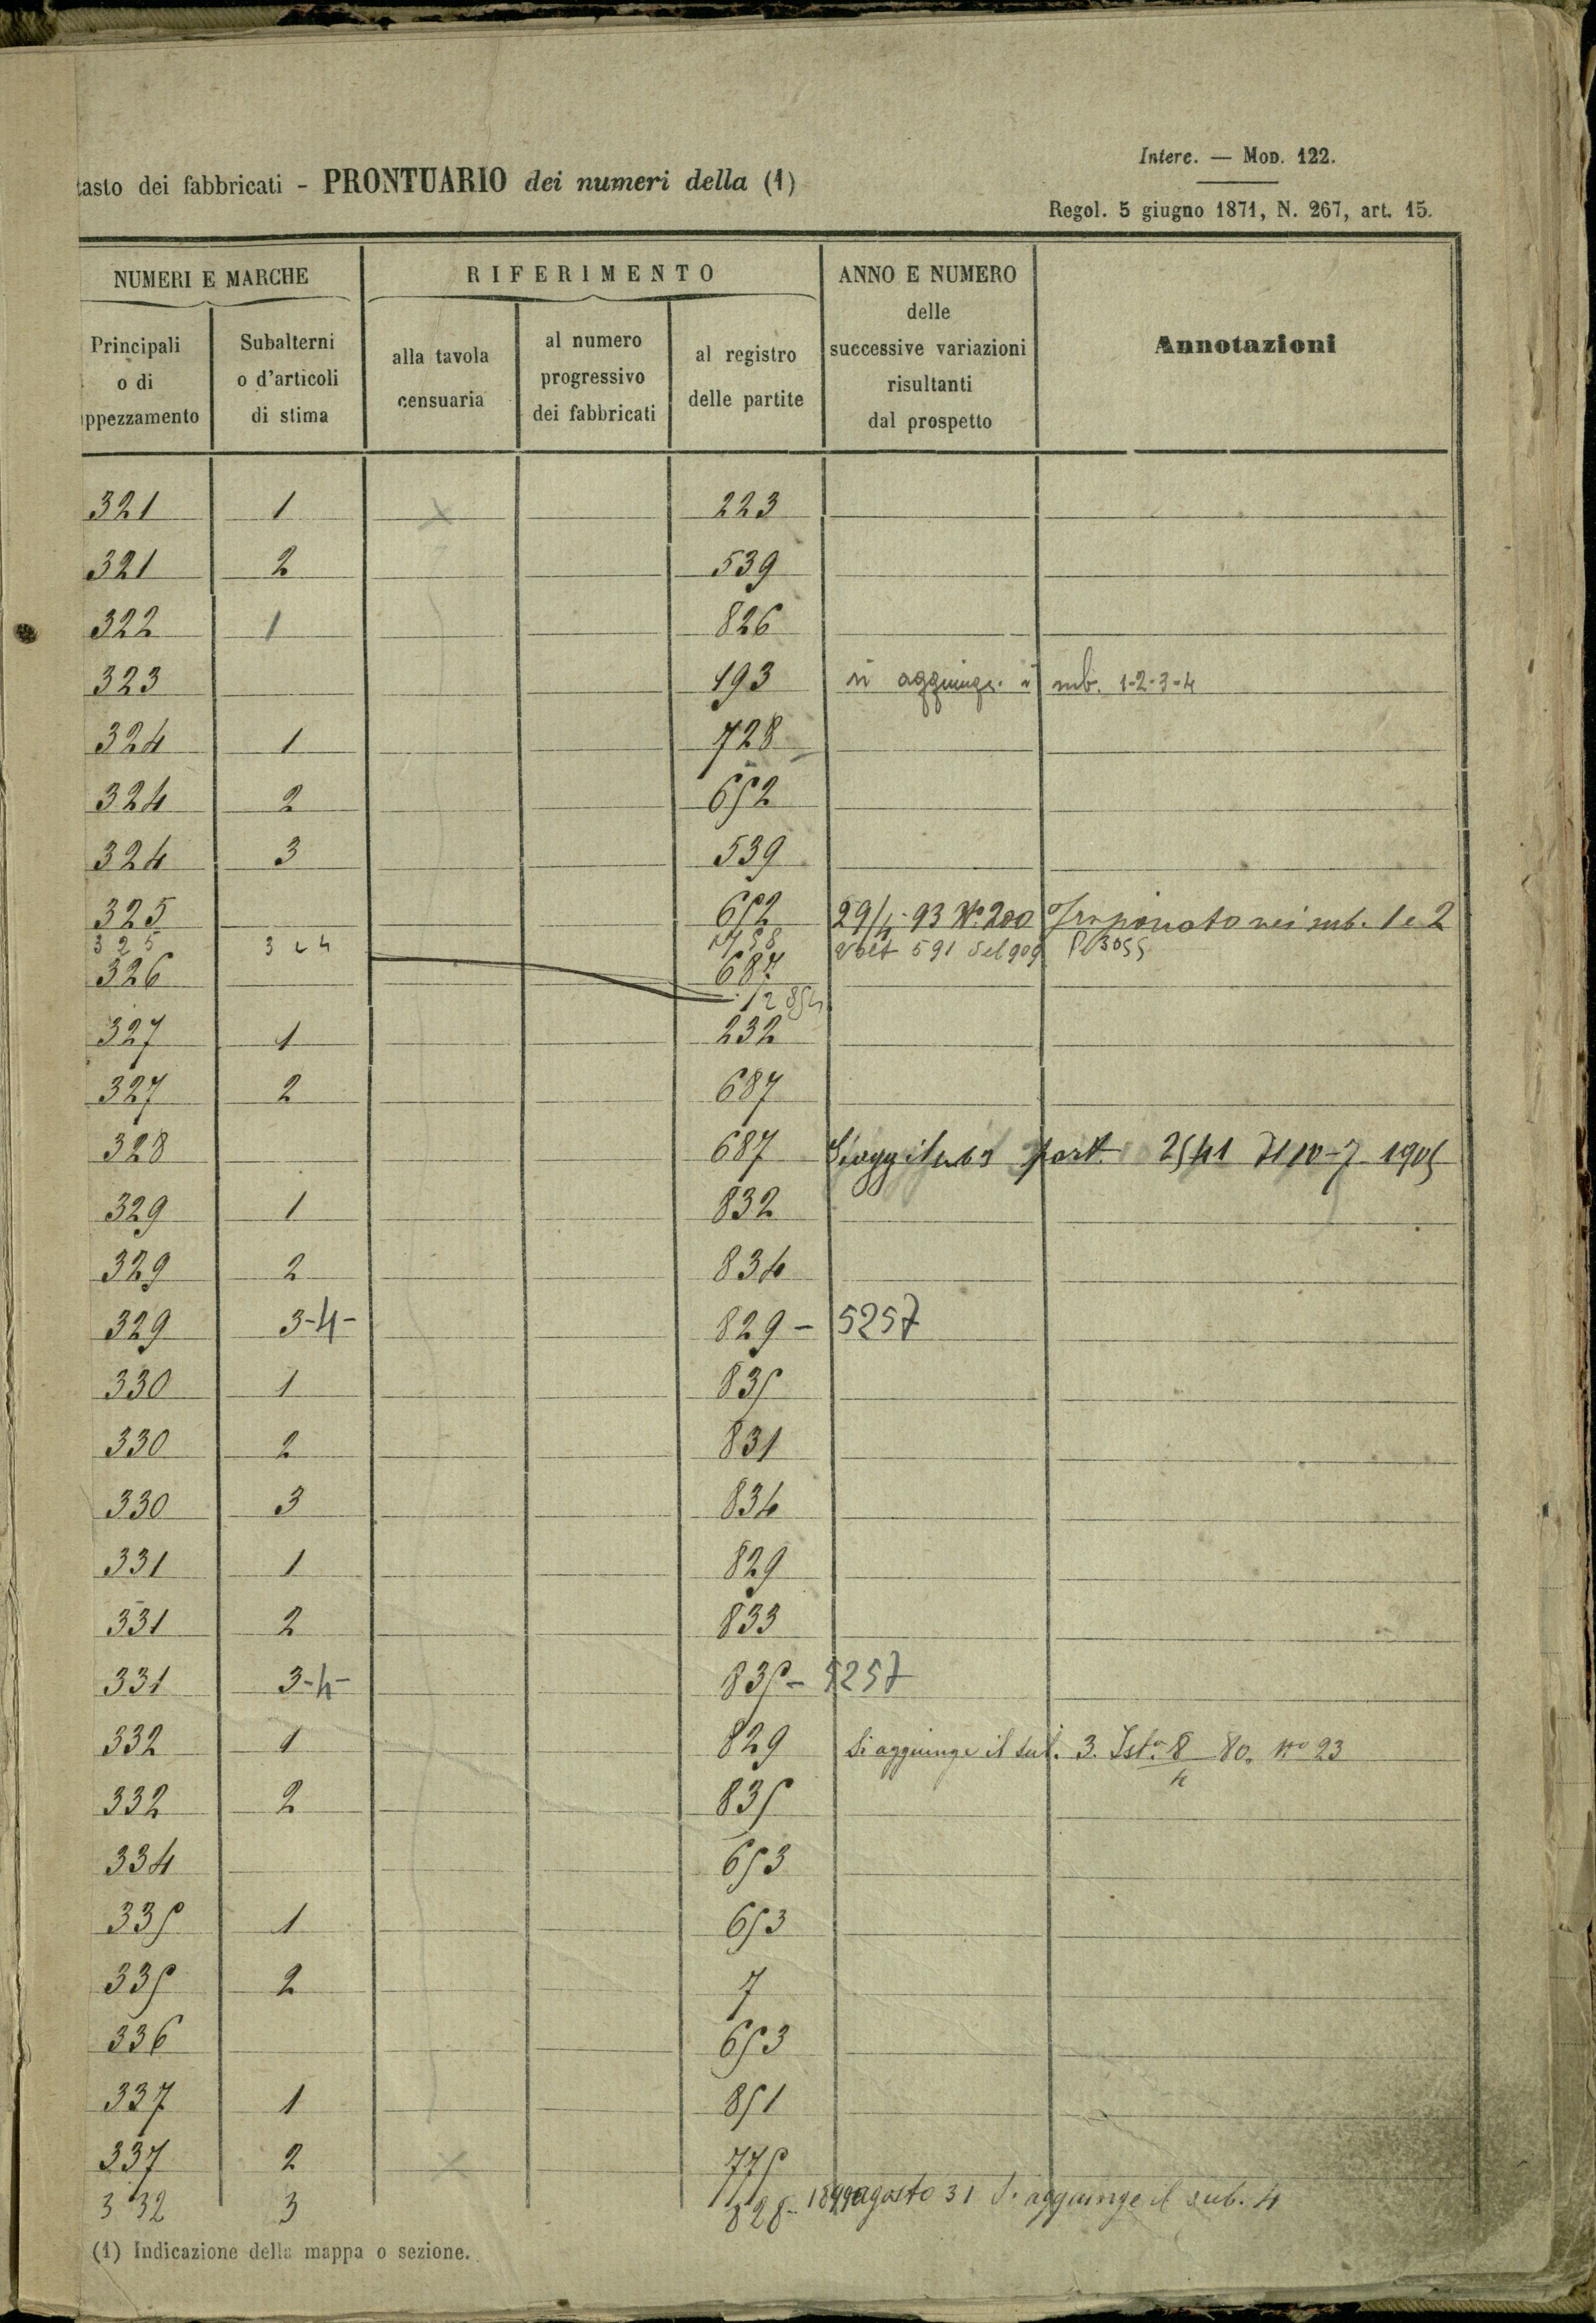 Interc. — MOD. 122.
tasto dei fabbricati - PRONTUARIO dei numeri della (1)
Regol. 5 giugno 1871, N. 267, art. 15.
NUMERI E MARCHE RIFERIMENTO ANNO E NUMERO delle successive variazioni risultanti dal prospetto Annotazioni
Principali o di ppezzamento Subalterni o d'articoli di stima alla tavola censuaria al numero progressivo dei fabbricati al registro delle partite
321 1 223
321 2 539
322 1 826
323 193 si aggiunge i sub. 1-2-3-4
324 1 728
324 2 652
324 3 539
325 652 29/4-93 No 200 nei sub. 1 e 2
325 3 591 del 909 3055
326 687
327 1 232
327 2 687
328 687 part. 2541 10-7 1905
329 1 832
329 2 834
329 3-4- 829 - 5257
330 1 835
330 2 831
330 3 834
331 1 829
331 2 833
331 3-4- 835 - 5257
332 1 829 Si aggiunge il sub. 3. 8/4 80. No 23
332 2 835
334 653
335 1 653
335 2 7
336 653
337 1 851
337 2 775
332 3 828- 1899 agosto 31 Si aggiunge il sub. 4
(1) Indicazione della mappa o sezione.